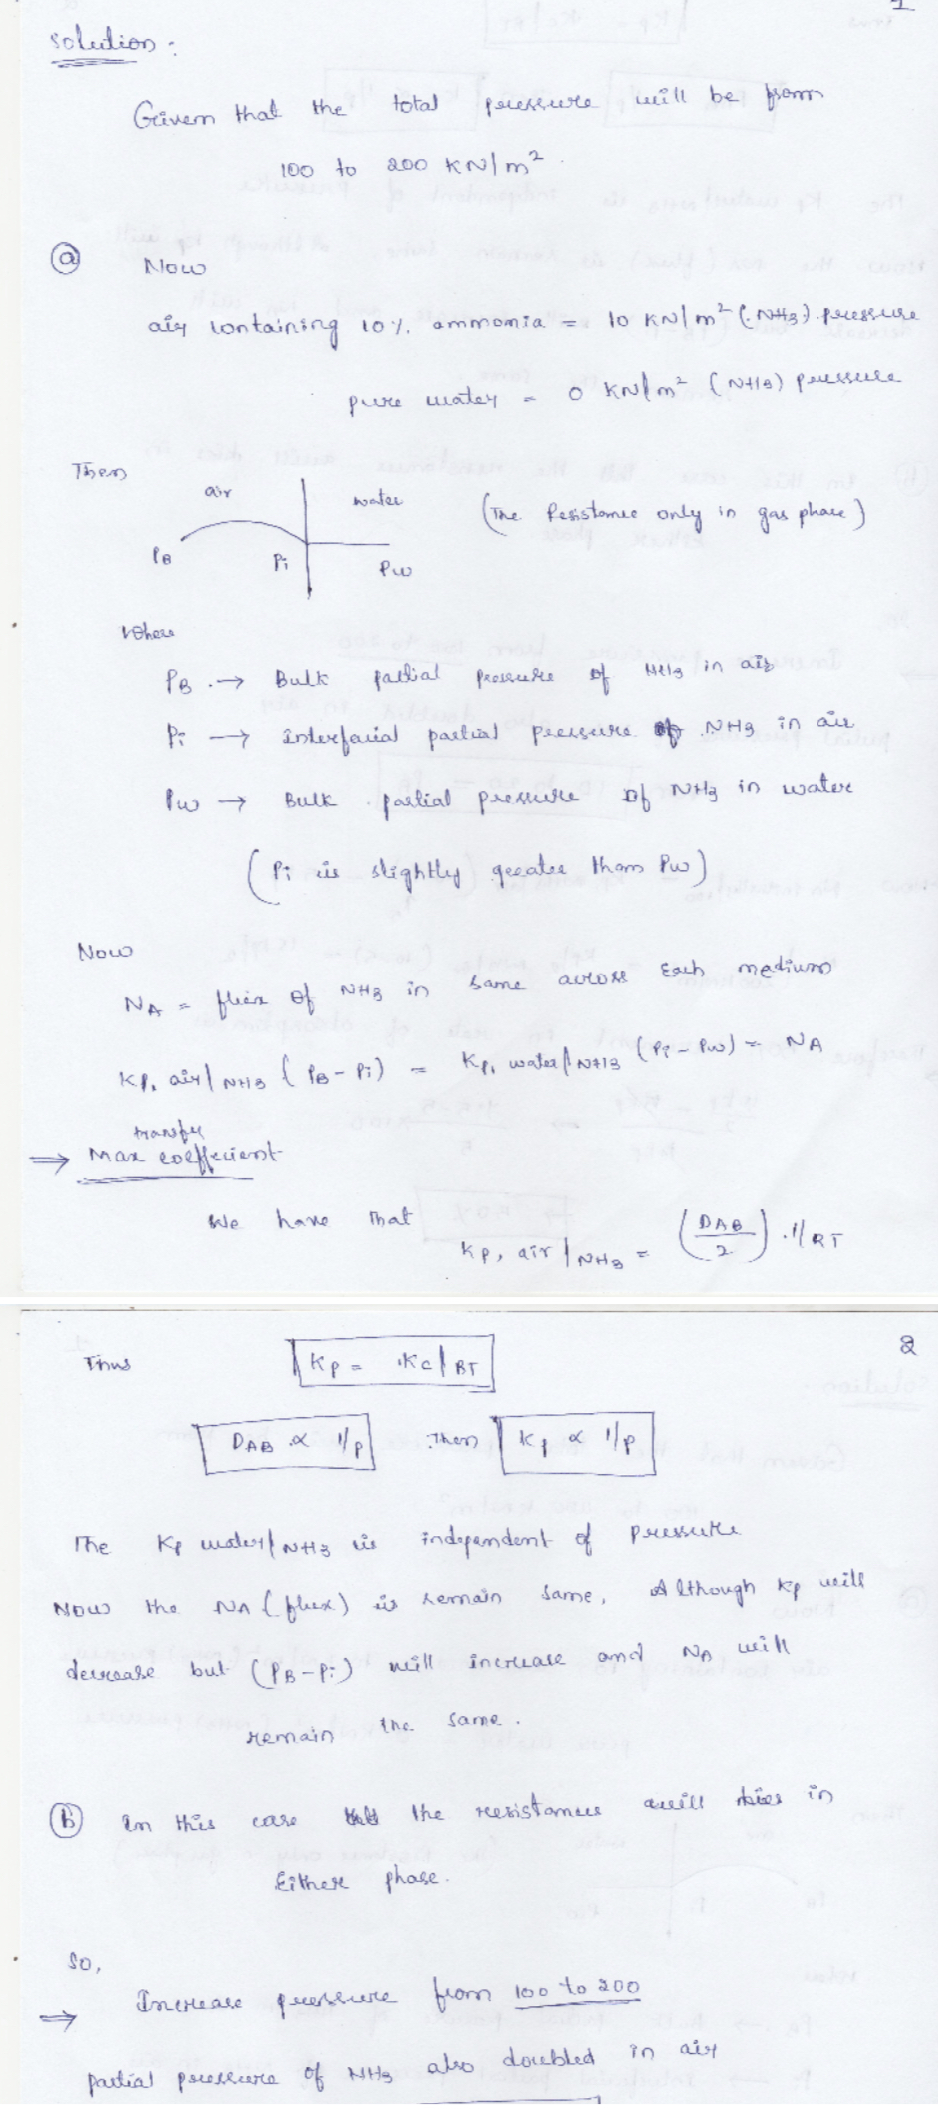 1
Solution :
Given that the total pressure will be from
100 to 200 KN/m²
(a) Now
air containing 10% ammonia = 10 KN/m² (NH3) pressure
pure water = 0 KN/m² (NH3) pressure
Then
air water (The Resistance only in gas phase)
PB Pi Pw
Where
PB → Bulk partial pressure of NH3 in air
Pi → interfacial partial pressure of NH3 in air
Pw → Bulk partial pressure of NH3 in water
(Pi is slightly greater than Pw)
Now
NA = flux of NH3 in same across Each medium
Kp, air/NH3 (PB - Pi) = Kp, water/NH3 (Pi - Pw) = NA
transfer
⇒ Max coefficient
We have that
Kp, air/NH3 = (DAB/2) . 1/RT
2
Thus Kp = Kc/BT
DAB ∝ 1/p Then Kp ∝ 1/p
The Kp water/NH3 is independent of pressure
Now the NA (flux) is remain same, Although Kp will
decrease but (PB - Pi) will increase and NA will
remain the same.
(b) In this case the resistances will in
Either phase.
So,
⇒ Increase pressure from 100 to 200
partial pressure of NH3 also doubled in air